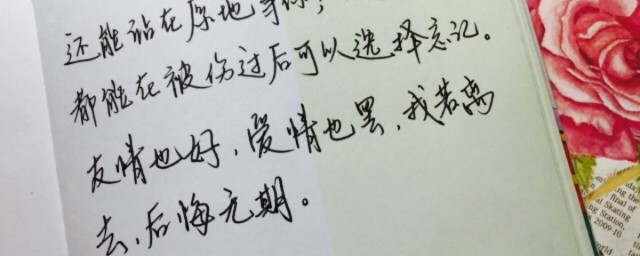 还能站在原地等你;
都能在被伤过后可以选择忘记。
友情也好、爱情也罢,我若离
去,后悔无期。
final of
al Skating
ing Station,
s 2009-10
world